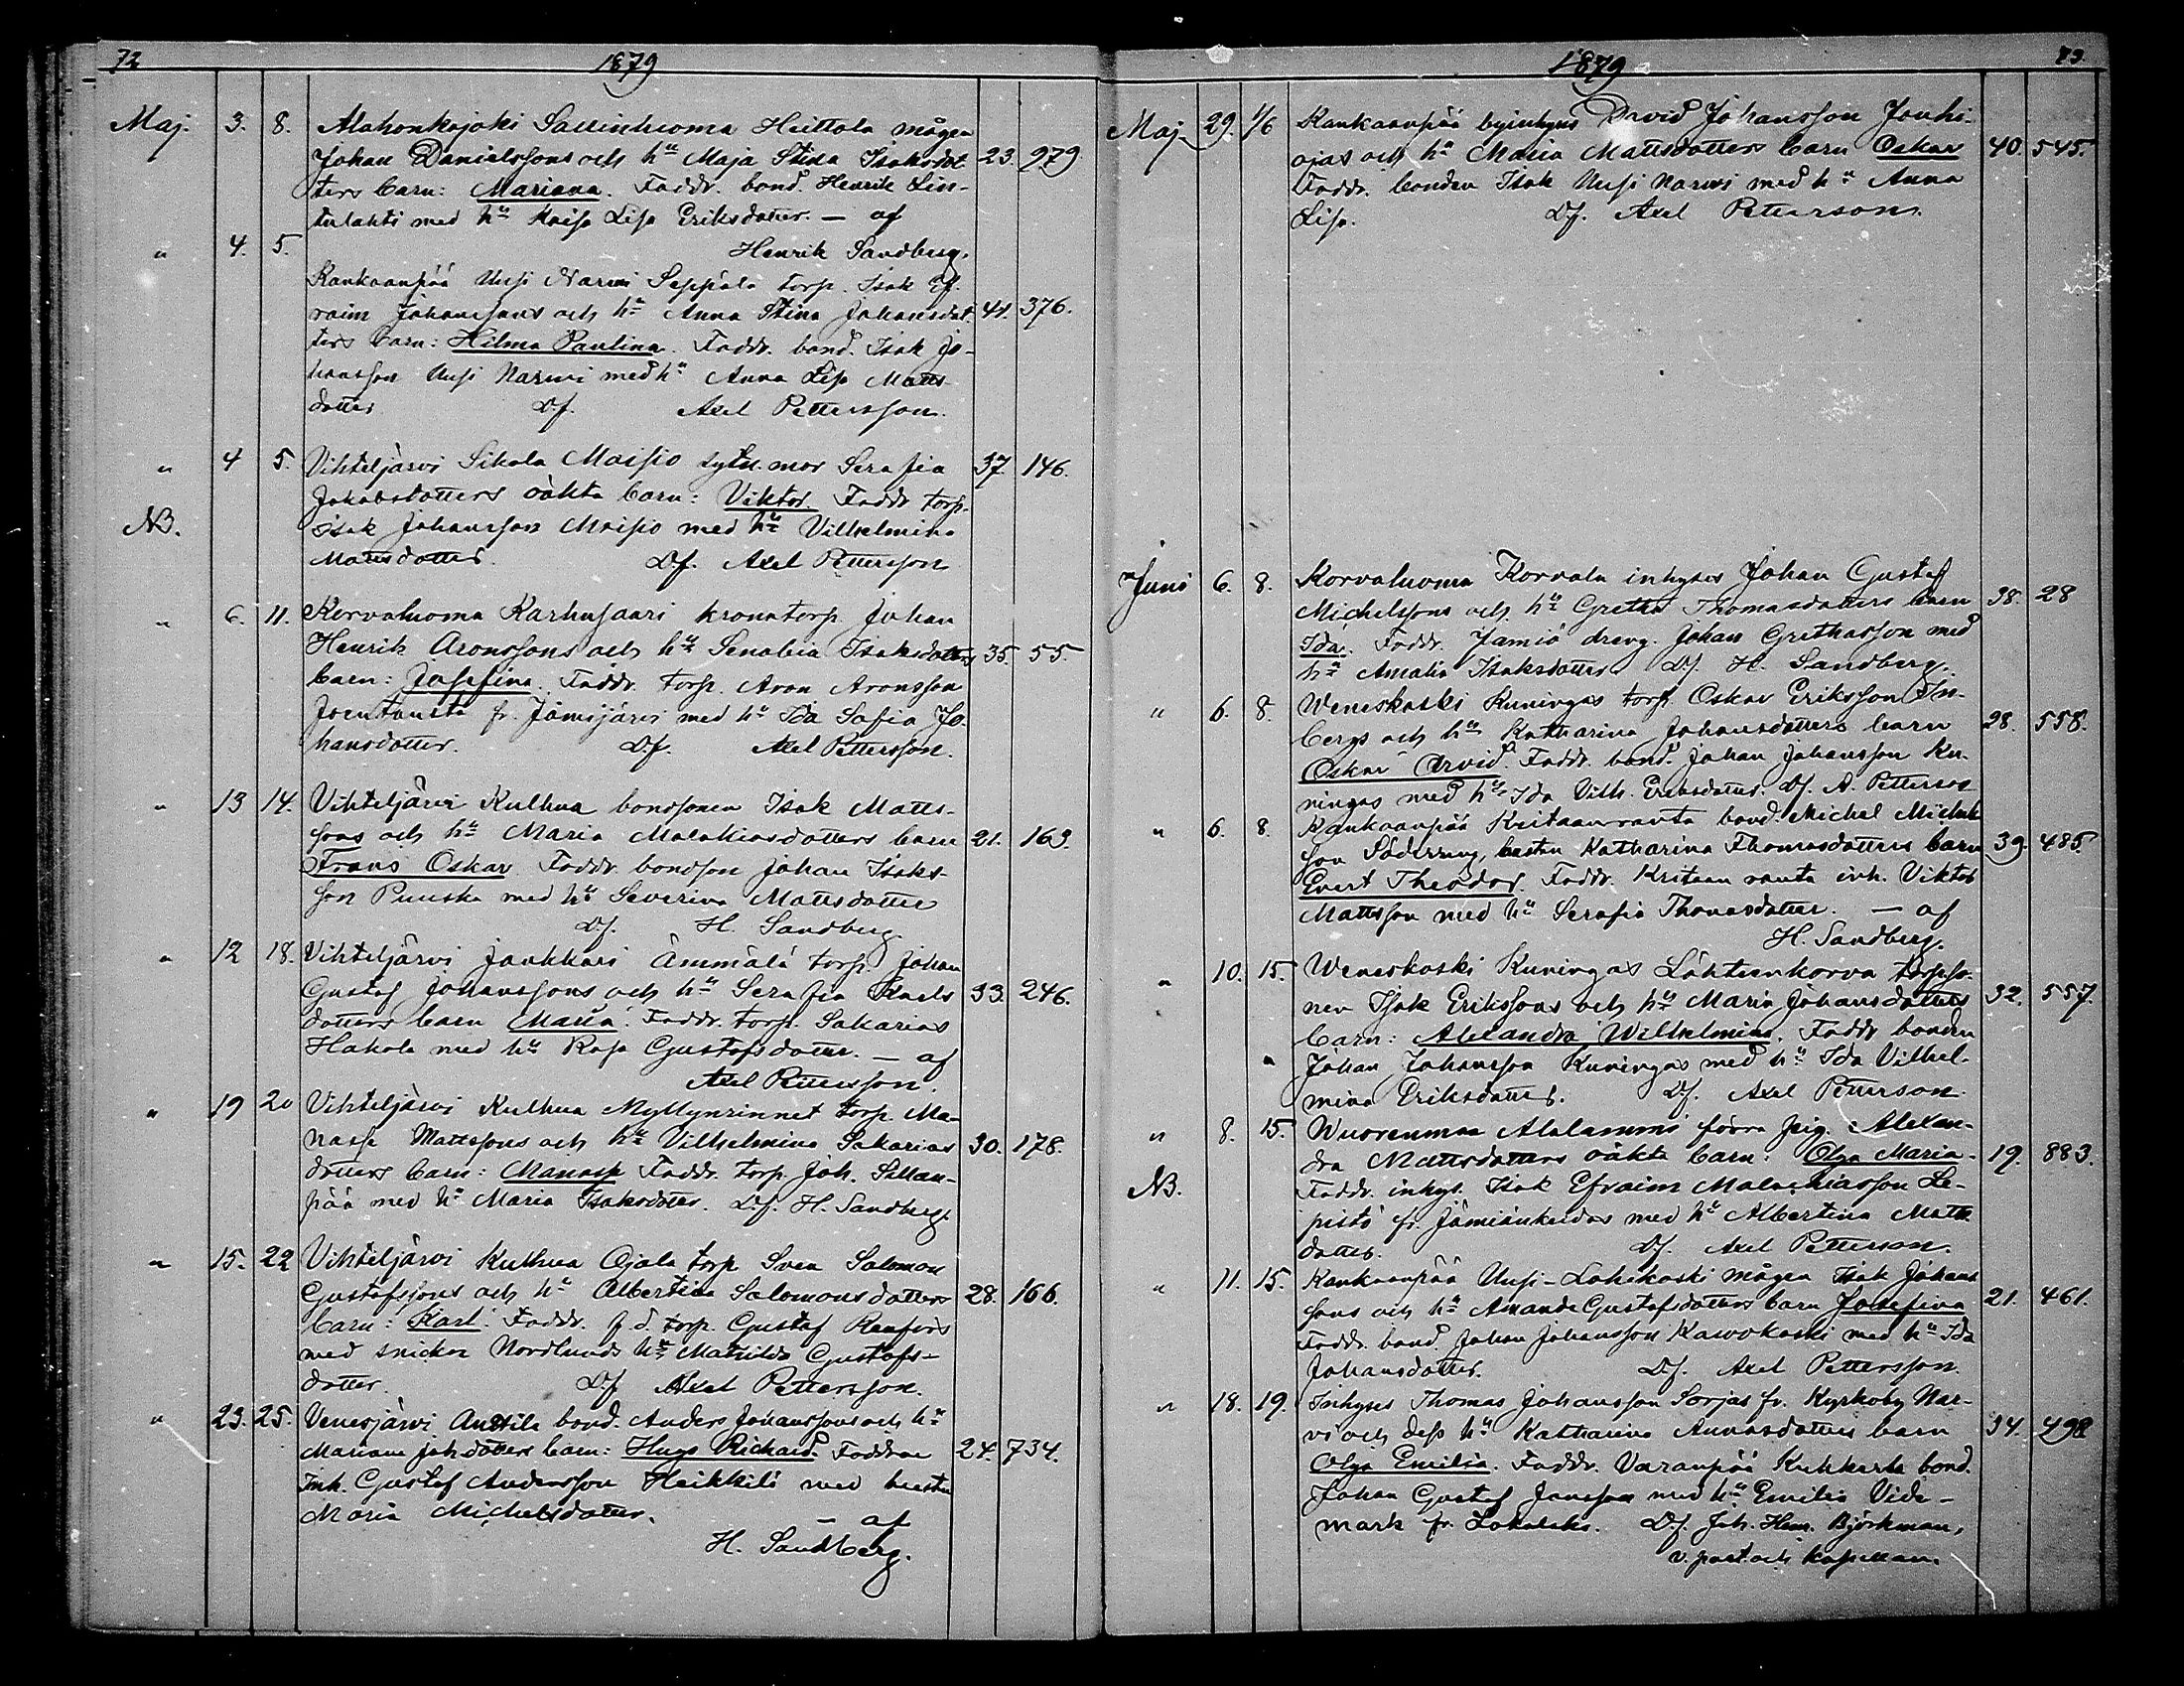 72 1879
Maj. 3. 8. Alahonkajoki Sallinluoma Heittola mågen
Johan Danielssons och hu Maja Stina Isaksdot- 23. 979
ters barn: Mariana. Faddr. bond. Henrik Lin-
tulahti med hu Kaisa Lisa Eriksdotter. — af
" 4. 5. Henrik Sandberg.
Kankaanpää Uusi Narvi Seppälä torp. Isak Ef-
raim Johanssons och hu Anna Stina Johansdot- 44. 376.
ters barn: Hilma Paulina. Faddr. bond. Isak Jo-
hansson Uusi Narwi med hu Anna Lisa Matts-
dotter. Df. Axel Pettersson.
" 4 5. Vihteljärvi Sikala Moisio sytn. mor Serafia 37. 146.
Jakobsdotters oäkta barn: Viktor. Faddr torp.
NB. Isak Johansson Moisio med hu Vilhelmina
Mattsdotter. Df. Axel Pettersson
" 6. 11. Korvaluoma Karhusaari kronotorp. Johan
Henrik Aronssons och hu Senabia Isaksdotters 35. 55.
barn: Josefina. Faddr. torp. Aron Aronsson
Joentausta fr. Jämijärvi med hu Ida Sofia Jo-
hansdotter. Df. Axel Pettersson.
" 13 14. Vihteljärvi Kulhua bondsonen Isak Matts-
sons och hu Maria Malakiasdotters barn 21. 163.
Frans Oskar. Faddr. bondson Johan Isaks-
son Punska med hu Severina Mattsdotter
Df. H. Sandberg.
" 12 18. Vihteljärvi Jankkari Ämmälä torp. Johan
Gustaf Johanssons och hu Serafia Karls 33. 246.
dotters barn Maria. Faddr. torp. Sakarias
Hakola med hu Kaja Gustafsdotter. — af
Axel Pettersson.
" 19 20 Vihteljärvi Kulhua Myllynrinnet torp. Ma-
nasse Mattssons och hu Vilhelmina Sakarias 30. 178.
dotters barn: Manasse Faddr. torp. Joh. Sillan-
pää med hu Maria Isaksdotter. Df. H. Sandberg.
" 15. 22 Vihteljärvi Kulhua Ojala torp Sven Salomon
Gustafssons och hu Albertina Salomonsdotters 28. 166.
barn: Karl. Faddr. f.d. torp. Gustaf Renfors
med snickar Nordlunds hu Matilda Gustafs-
dotter. Df Axel Pettersson.
" 23. 25. Venesjärvi Anttila bond. Anders Johanssons och hu
Mariana Joh.dotters barn: Hugo Richard Faddrar 24. 734.
Inh. Gustaf Andersson Heikkilä med hustru
Maria Michelsdotter. — af
H. Sandberg.
1879 73.
Maj 29. 1/6 Kankaanpää byinhyses David Johansson Jouhi-
ojas och hu Maria Mattsdotters barn Oskar 40. 545.
Faddr. bonden Isak Uusi Narwi med hu Anna
Lisa. Df. Axel Petterson.
Juni 6. 8. Korvaluoma Korvala inhyses Johan Gustaf
Michelssons och hu Gretha Thomasdotters barn 38. 28
Ida. Faddr. Jämiö dreng. Johan Grethasson med
hu Amalia Isaksdotter Df. H. Sandberg.
" 6. 8. Weneskoski Kuningas torp Oskar Eriksson In-
bergs och hu Katharina Johansdotters barn 28. 558.
Oskar Arvid. Faddr. bond. Johan Johansson Ku-
ningas med hu Ida Vilh. Eriksdotter. Df. A. Petterson
" 6. 8. Kankaanpää Kritaanranta bond. Michel Michels
son Söderring, hustru Katharina Thomasdotters barn 39. 485.
Evert Theodor. Faddr. Kritaanranta inh. Viktor
Mattsson med hu Serafia Thomasdotter. — af
H. Sandberg.
" 10. 15. Weneskoski Kuningas Lähteenkorva torpso-
nen Isak Erikssons och hu Maria Johansdotters 32. 557.
barn: Alexandra Wilhelmina. Faddr bonden
" Johan Johansson Kuningas med hu Ida Vilhel-
mina Eriksdotter. Df. Axel Petterson.
" 8. 15. Wuorenmaa Alalammi förra pig. Alexan-
dra Mattsdotters oäkta barn. Olga Maria. 19. 883.
NB. Faddr. inhys. Isak Efraim Malachiasson Le-
pistö fr. Jämiänkeidas med hu Albertina Matts
dotter. Df. Axel Petterson.
" 11. 15. Kankaanpää Uusi-Lohikoski mågen Isak Johans
sons och hu Amanda Gustafsdotters barn Josefina 21. 461.
Faddr. bond. Johan Johansson Kawokoski med hu Ida
Johansdotter. Df. Axel Pettersson.
" 18. 19. Inhyses Thomas Johansson Sorjas fr. Kyrkoby Nar-
vi och dess hu Katharina Annasdotters barn 34. 498
Olga Emilia. Faddr. Varanpää Kuhkerla bond.
Johan Gustaf Jansson med hu Emilia Vide-
mark fr. Lokalaks. Df. Joh. Hem. Björkman,
v. past och kapellan.